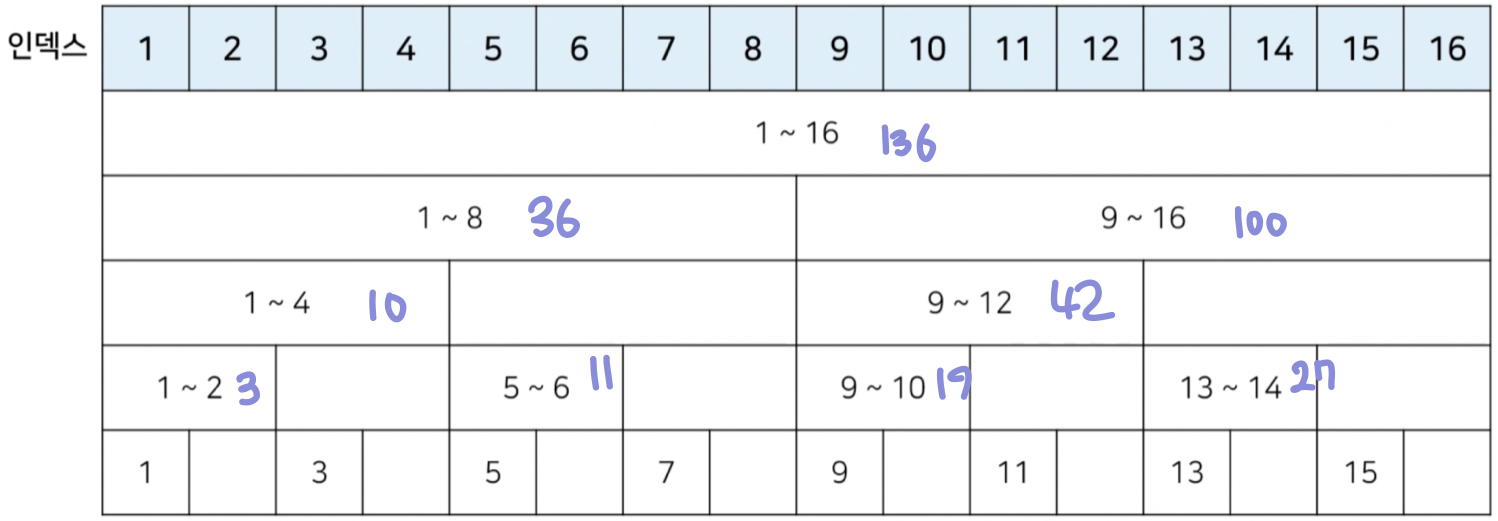 인덱스 1 2 3 4 5 6 7 8 9 10 11 12 13 14 15 16
1 ~ 16 136
1 ~ 8 36 9 ~ 16 100
1 ~ 4 10 9 ~ 12 42
1 ~ 2 3 5 ~ 6 11 9 ~ 10 19 13 ~ 14 27
1 3 5 7 9 11 13 15